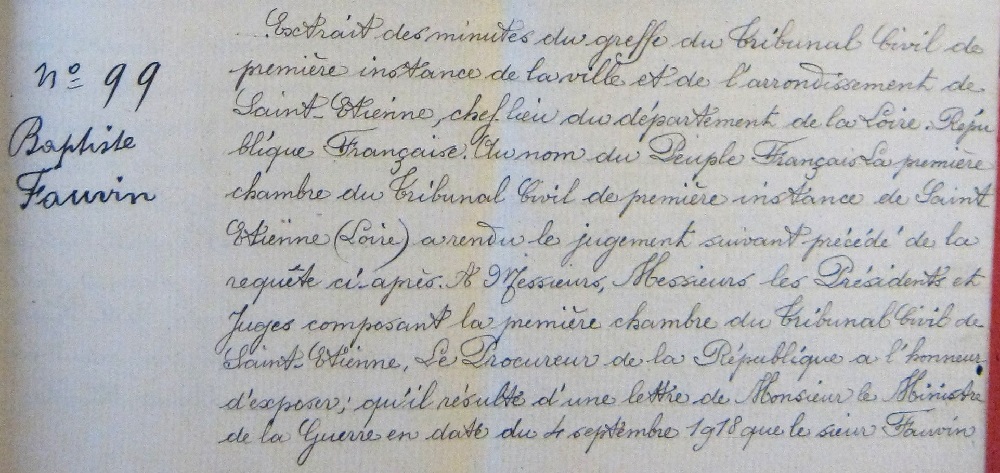 N° 99
Baptiste
Fauvin
Extrait des minutes du greffe du Tribunal Civil de
première instance de la ville et de l'arrondissement de
Saint-Etienne, chef lieu du département de la Loire. Répu
blique Française. Au nom du Peuple Français La première
chambre du Tribunal Civil de première instance de Saint
Etienne (Loire) a rendu le jugement suivant précédé de la
requête ci-après. A Messieurs, Messieurs les Présidents et
Juges composant la première chambre du Tribunal Civil de
Saint-Etienne, Le Procureur de la République a l'honneur
d'exposer; qu'il résulte d'une lettre de Monsieur le Ministre
de la Guerre en date du 4 septembre 1918 que le sieur Fauvin